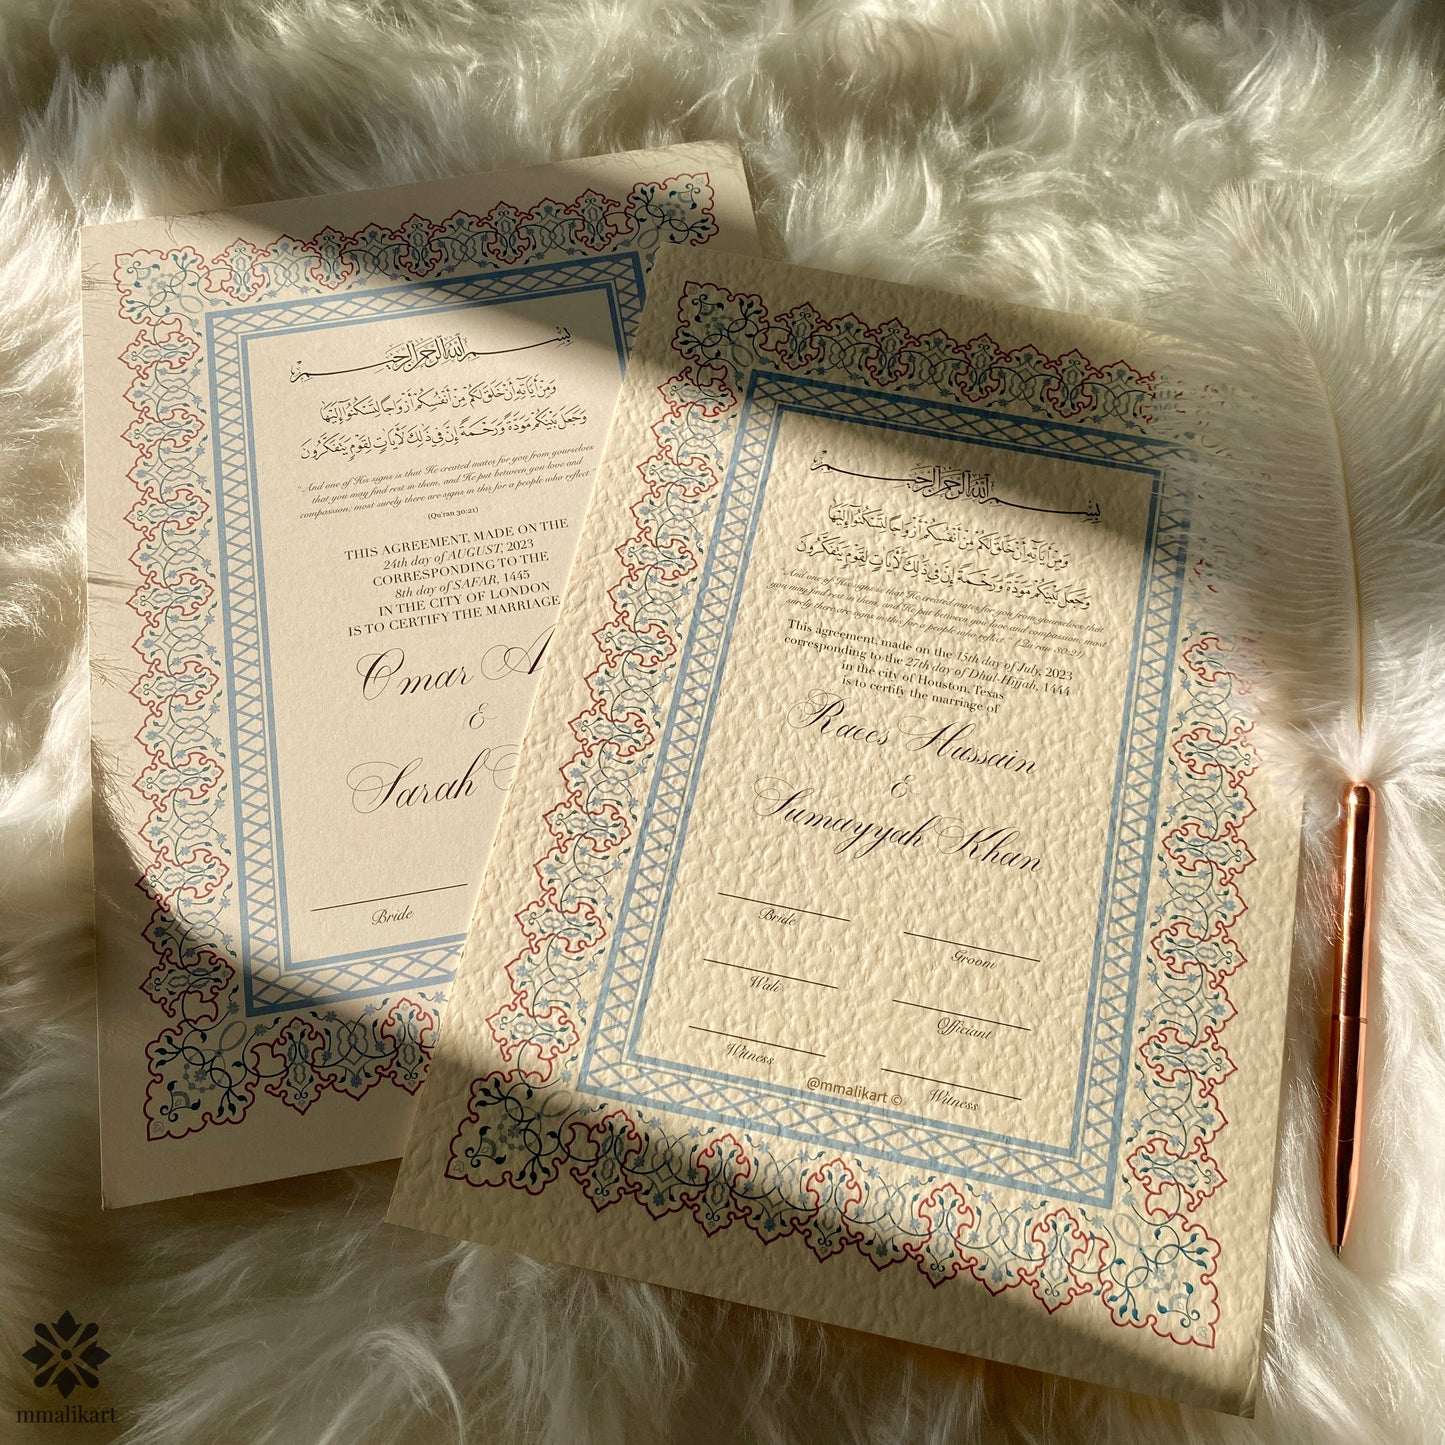 بِسْمِ اللهِ الرَّحْمٰنِ الرَّحِيْمِ
وَمِنْ أَيَاتِهِ أَنْ خَلَقَ لَكُمْ مِنْ أَنْفُسِكُمْ أَزْوَاجًا لِتَسْكُنُوا إِلَيْهَا
وَجَعَلَ بَيْنَكُمْ مَوَدَّةً وَرَحْمَةً إِنَّ فِي ذَلِكَ لَأَيَاتٍ لِقَوْمٍ يَتَفَكَّرُون
"And one of His signs is that He created mates for you from yourselves
that you may find rest in them, and He put between you love and
compassion; most surely there are signs in this for a people who reflect."
(Qu'ran 30:21)
THIS AGREEMENT, MADE ON THE
24th day of AUGUST, 2023
CORRESPONDING TO THE
8th day of SAFAR, 1445
IN THE CITY OF LONDON
IS TO CERTIFY THE MARRIAGE
Omar A
&
Sarah
Bride
بِسْمِ اللهِ الرَّحْمٰنِ الرَّحِيْمِ
وَمِنْ أَيَاتِهِ أَنْ خَلَقَ لَكُمْ مِنْ أَنْفُسِكُمْ أَزْوَاجًا لِتَسْكُنُوا إِلَيْهَا
وَجَعَلَ بَيْنَكُمْ مَوَدَّةً وَرَحْمَةً إِنَّ فِي ذَلِكَ لَأَيَاتٍ لِقَوْمٍ يَتَفَكَّرُون
"And one of His signs is that He created mates for you from yourselves that
you may find rest in them, and He put between you love and compassion, most
surely there are signs in this for a people who reflect." (Qu'ran 30:21)
This agreement, made on the 15th day of July, 2023
corresponding to the 27th day of Dhul-Hijjah, 1444
in the city of Houston, Texas
is to certify the marriage of
Raees Hussain
&
Sumayyah Khan
Bride
Groom
Wali
Officiant
Witness
Witness
@mmalikart ©
mmalikart